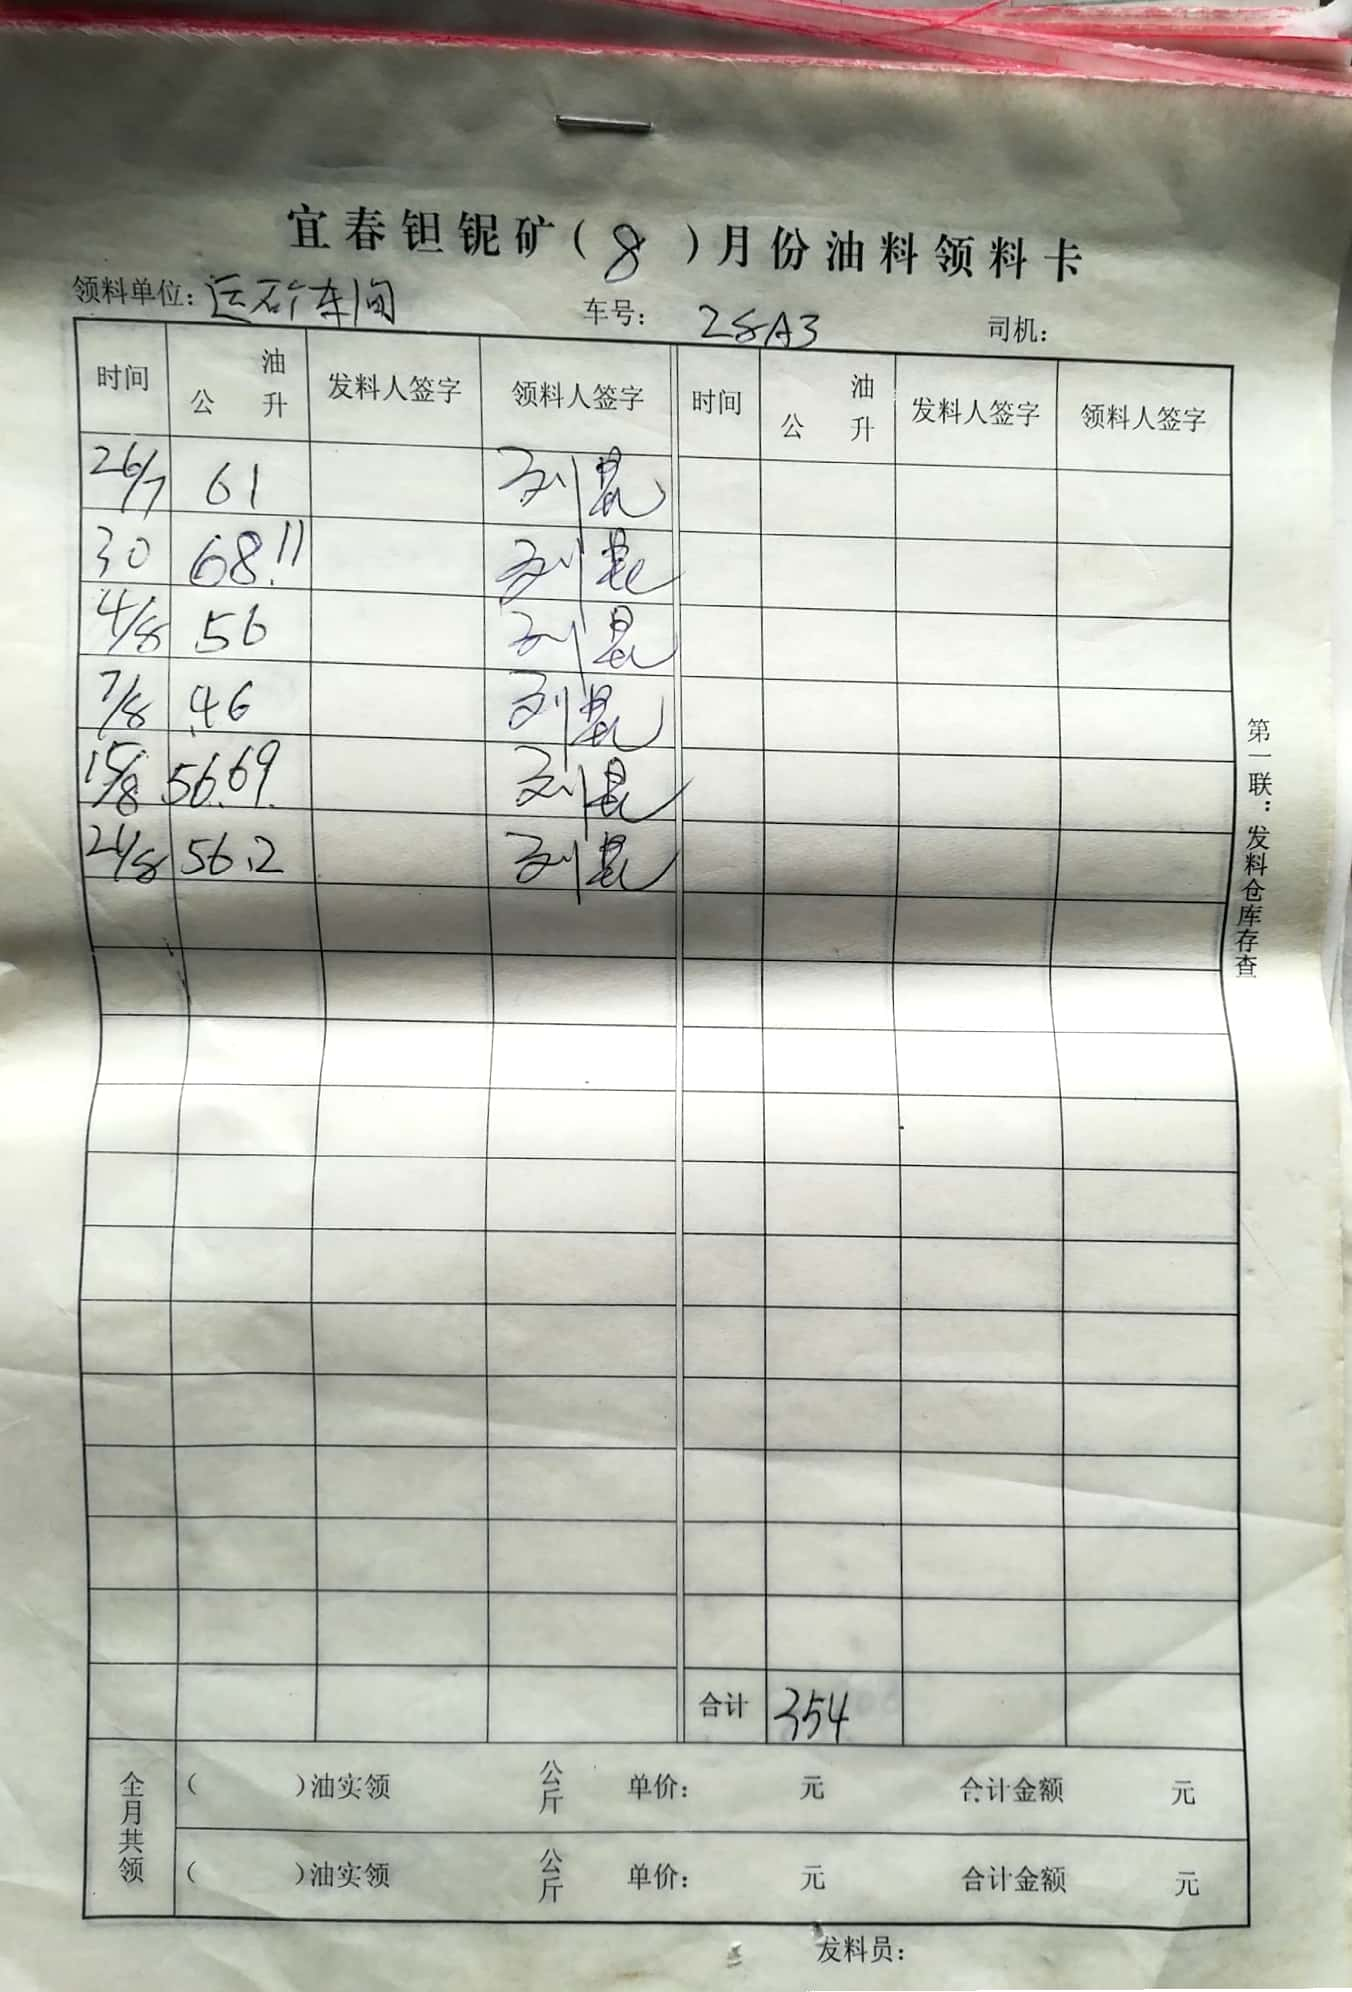 宜春钽铌矿（8）月份油料领料卡
领料单位：运矿车间 车号：28A3 司机：
时间 油公升 发料人签字 领料人签字 时间 油公升 发料人签字 领料人签字
26/7 61 刘昆
30 68.11 刘昆
4/8 56 刘昆
7/8 46 刘昆
15/8 56.69 刘昆
21/8 56.2 刘昆
合计 354
全月共领
（ ）油实领 公斤 单价： 元 合计金额 元
（ ）油实领 公斤 单价： 元 合计金额 元
发料员：
第一联：发料仓库存查